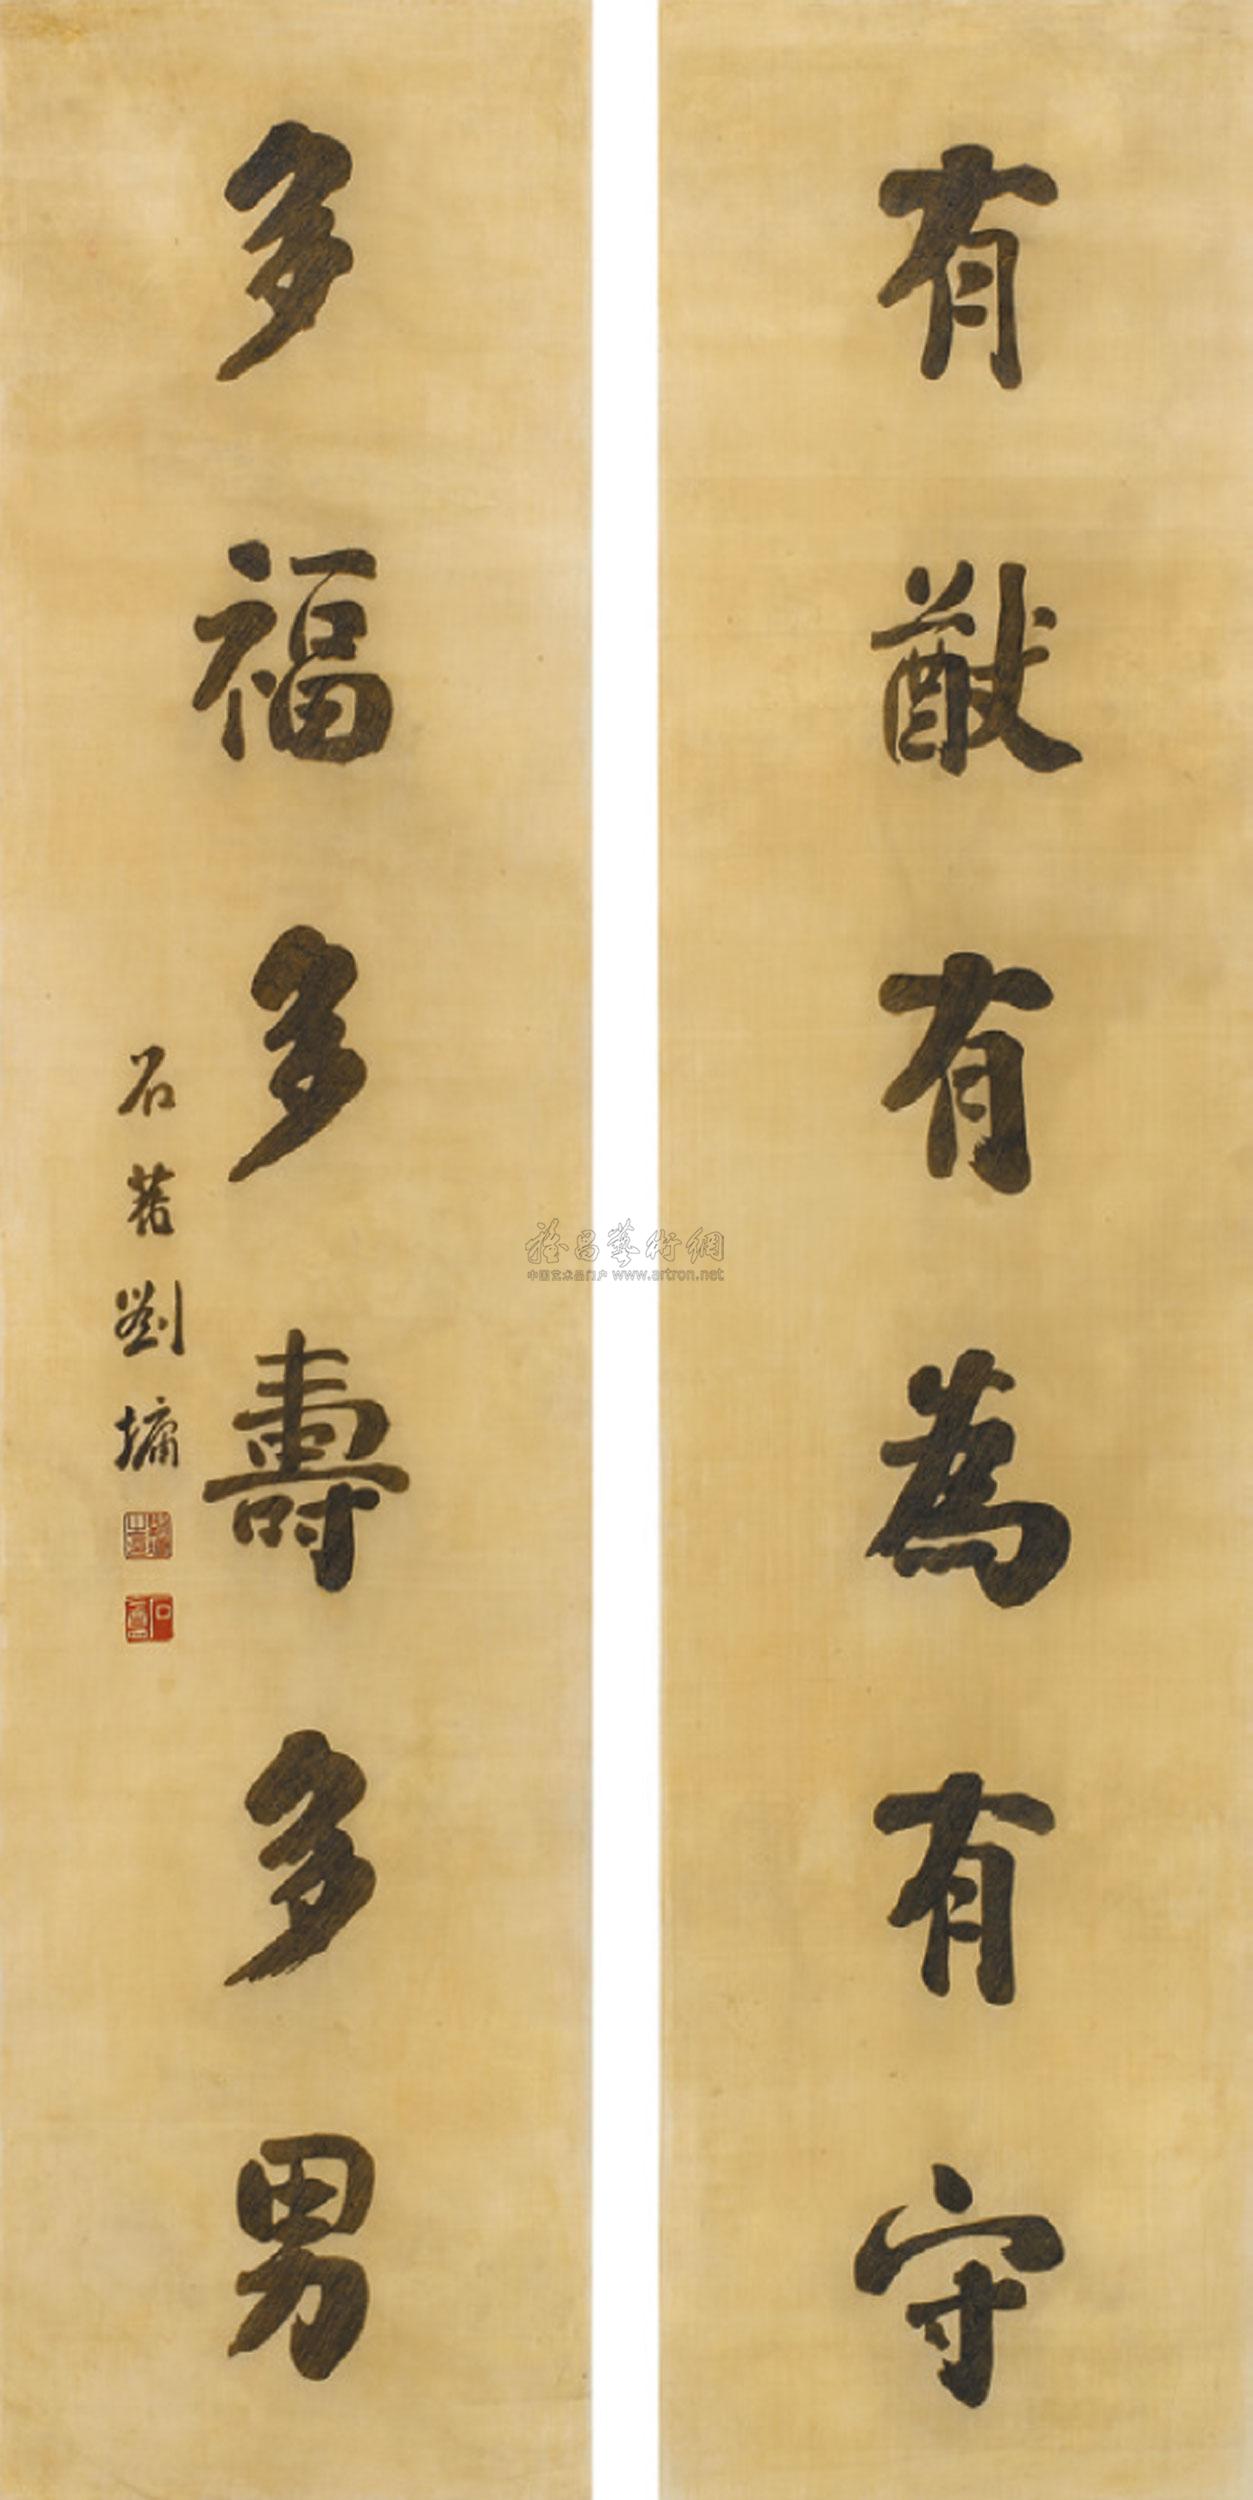 有猷有為有守
多福多壽多男
石菴劉墉
雅昌藝術網
中国艺术品门户 www.artron.net